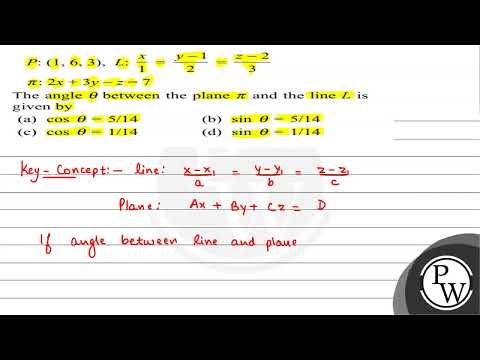 P: (1, 6, 3), L: x/1 = y−1/2 = z−2/3
π: 2x + 3y − z = 7
The angle θ between the plane π and the line L is
given by
(a) cos θ = 5/14 (b) sin θ = 5/14
(c) cos θ = 1/14 (d) sin θ = 1/14
Key - Concept:- line: x-x₁/a = y-y₁/b = z-z₁/c
Plane: Ax + By + Cz = D
If angle between line and plane
PW